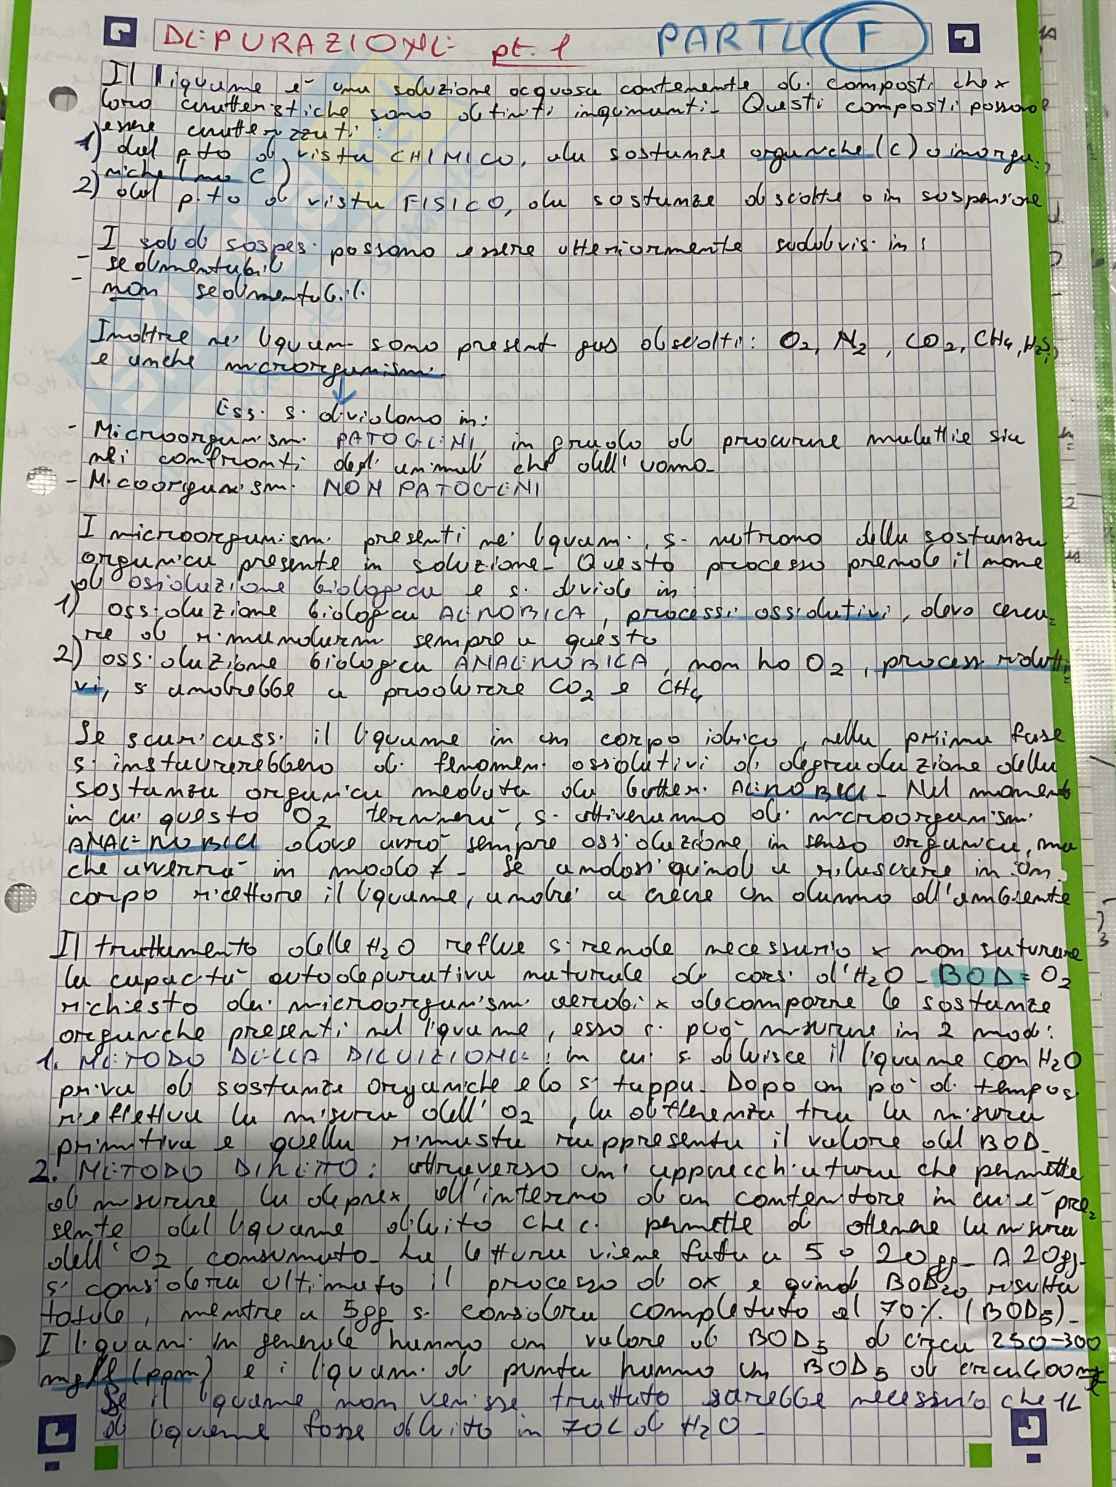 DEPURAZIONE pt. 1 PARTE F
Il liquame è una soluzione acquosa contenente di composti che x
loro caratteristiche sono definiti inquinanti. Questi composti possono
essere caratterizzati:
1) dal p.to di vista CHIMICO, da sostanze organiche (C) o inorga-
niche (no C)
2) dal p.to di vista FISICO, da sostanze disciolte o in sospensione
I solidi sospesi possono essere ulteriormente suddivisi in:
- sedimentabili
- non sedimentabili.
Inoltre nei liquami sono presenti gas disciolti: O2, N2, CO2, CH4, H2S,
e anche microrganismi.
Essi si dividono in:
- Microorganismi PATOGENI, in grado di procurare malattie sia
nei confronti degli animali che dell'uomo.
- Micoorganismi NON PATOGENI
I microorganismi presenti nei liquami, si nutrono della sostanza
organica presente in soluzione. Questo processo prende il nome
di ossidazione biologica e si divide in:
1) ossidazione biologica AEROBICA, processi ossidativi, devo cerca-
re di rimandarmi sempre a questo
2) ossidazione biologica ANAEROBICA, non ho O2, processi ridutti-
vi, si andrebbe a produrre CO2 e CH4
Se scaricassi il liquame in un corpo idrico, nella priima fase
si instaurerebbero di fenomeni ossidativi di degradazione della
sostanza organica mediata da batteri AEROBICI. Nel momento
in cui questo O2 terminerà, si attiveranno di microorganismi
ANAEROBICI dove avrò sempre ossidazione in senso organica, ma
che avverrà in modo ≠. Se andassi quindi a rilasciare in un
corpo ricettore il liquame, andrei a creare un danno all'ambiente
Il trattamento delle H2O reflue si rende necessario x non saturare
la capacità autodepurativa naturale di corsi d'H2O. BOD = O2
richiesto dai microorganismi aerobi x decomporre le sostanze
organiche presenti nel liquame, esso si può misurare in 2 modi:
1. METODO DELLA DILUIZIONE: in cui si diluisce il liquame con H2O
priva di sostanze organiche e lo si tappa. Dopo un po' di tempo si
rieffettua la misura dell'O2, la differenza tra la misura
primitiva e quella rimasta rappresenta il valore del BOD.
2. METODO DIRETTO: attraverso un'apparecchiatura che permette
di misurare la depres all'interno di un contenitore in cui è pre-
sente del liquame diluito che ci permette di ottenere la misura
dell'O2 consumato. La lettura viene fatta a 5 o 20gg. A 20gg.
si considera ultimato il processo di ox e quindi BOD20 risulta
totale, mentre a 5gg si considera completato al 70% (BOD5).
I liquami in generale hanno un valore di BOD5 di circa 250-300
mg/l (ppm) e i liquami di punta hanno un BOD5 di circa 400
Se il liquame non venisse trattato sarebbe necessario che 1L
di liquame fosse diluito in 70L di H2O.